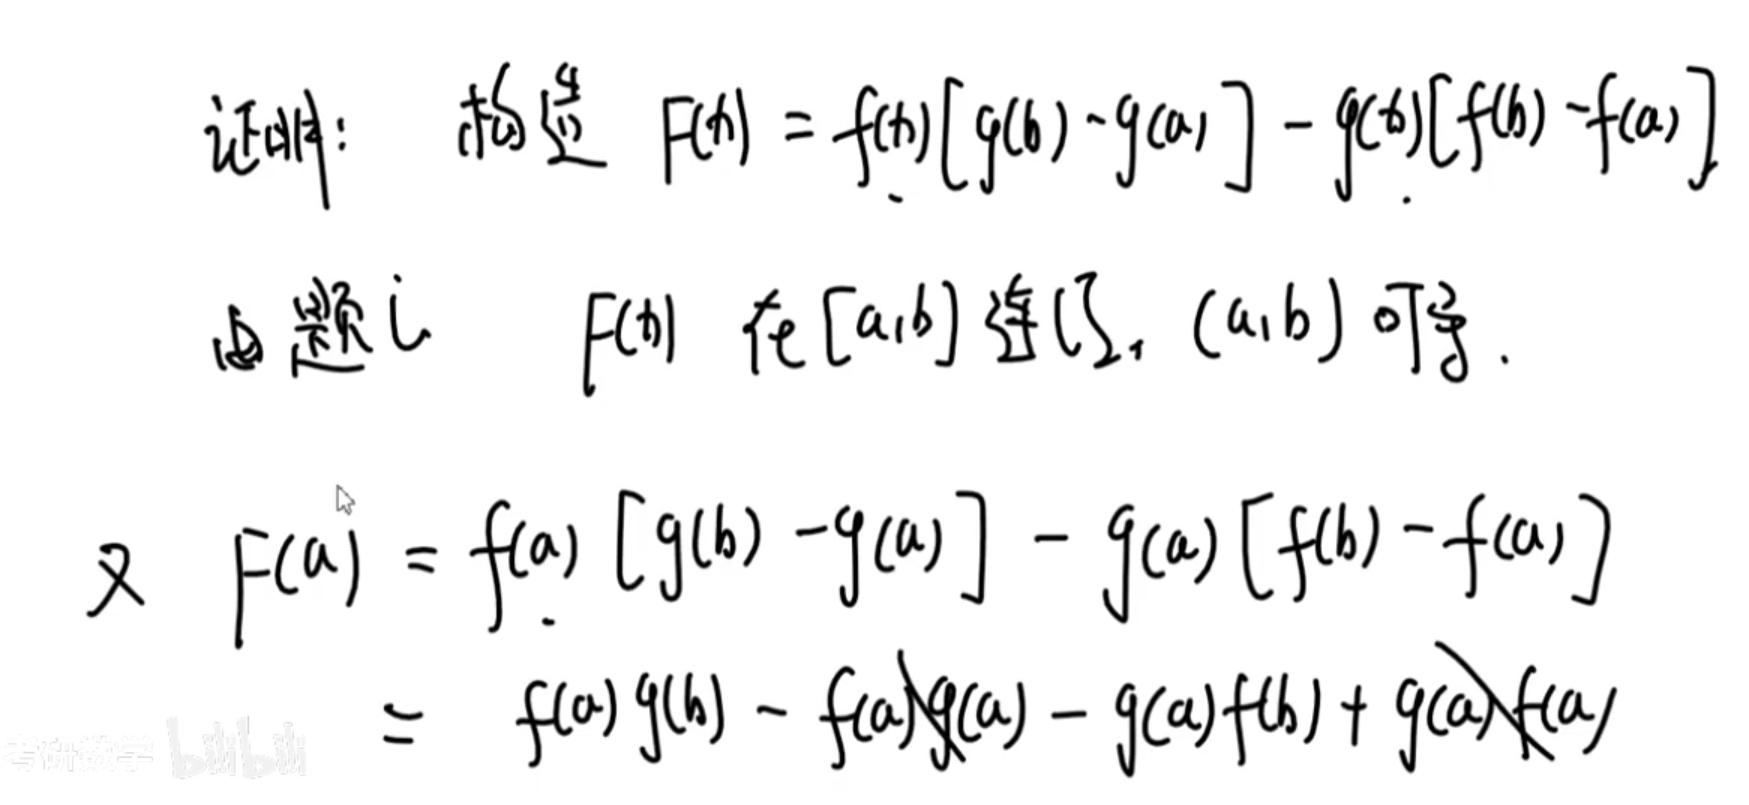 证明: 构造 F(x) = f(x)[g(b)-g(a)] - g(x)[f(b)-f(a)]
由题意 F(x) 在[a,b]连续, (a,b)可导.
又 F(a) = f(a) [g(b)-g(a)] - g(a)[f(b)-f(a)]
= f(a)g(b) - f(a)g(a) - g(a)f(b) + g(a)f(a)
考研数学 bilibili